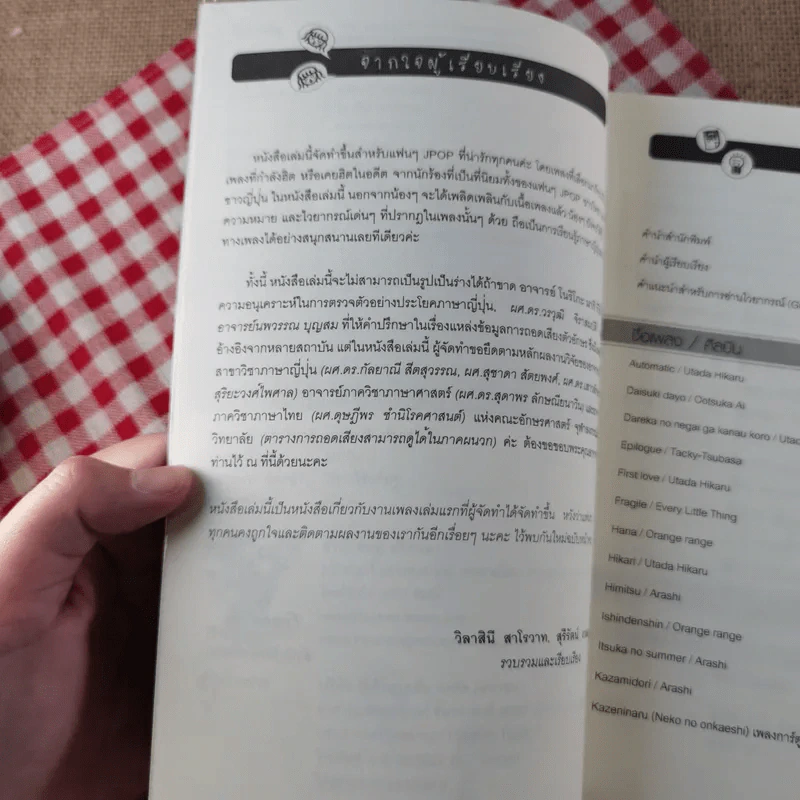 จากใจผู้เรียบเรียง
หนังสือเล่มนี้จัดทำขึ้นสำหรับแฟนๆ JPOP ที่น่ารักทุกคนค่ะ โดยเพลงที่เลือก
เพลงที่กำลังฮิต หรือเคยฮิตในอดีต จากนักร้องที่เป็นที่นิยมทั้งของแฟนๆ JPOP
ชาวญี่ปุ่น ในหนังสือเล่มนี้ นอกจากน้องๆ จะได้เพลิดเพลินกับเนื้อเพลงแล้ว
ความหมาย และไวยากรณ์เด่นๆ ที่ปรากฏในเพลงนั้นๆ ด้วย ถือเป็นการเรียนรู้ภาษา
ทางเพลงได้อย่างสนุกสนานเลยทีเดียวค่ะ
ทั้งนี้ หนังสือเล่มนี้จะไม่สามารถเป็นรูปเป็นร่างได้ถ้าขาด อาจารย์ โนริโกะ
ความอนุเคราะห์ในการตรวจตัวอย่างประโยคภาษาญี่ปุ่น, ผศ.ดร.วรวุฒิ
อาจารย์นพวรรณ บุญสม ที่ให้คำปรึกษาในเรื่องแหล่งข้อมูลการถอดเสียงตัวอักษร
อ้างอิงจากหลายสถาบัน แต่ในหนังสือเล่มนี้ ผู้จัดทำขอยึดตามหลักผลงานวิจัยของ
สาขาวิชาภาษาญี่ปุ่น (ผศ.ดร.กัลยาณี สีตสุวรรณ, ผศ.สุชาดา สัตยพงศ์, ผศ.ดร.
สุริยะวงศ์ไพศาล) อาจารย์ภาควิชาภาษาศาสตร์ (ผศ.ดร.สุดาพร ลักษณียนาวิน)
ภาควิชาภาษาไทย (ผศ.ดุษฎีพร ชำนิโรคศาสนต์) แห่งคณะอักษรศาสตร์
วิทยาลัย (ตารางการถอดเสียงสามารถดูได้ในภาคผนวก) ค่ะ ต้องขอขอบพระคุณ
ท่านไว้ ณ ที่นี้ด้วยนะคะ
หนังสือเล่มนี้เป็นหนังสือเกี่ยวกับงานเพลงเล่มแรกที่ผู้จัดทำได้จัดทำขึ้น
ทุกคนคงถูกใจและติดตามผลงานของเรากันอีกเรื่อยๆ นะคะ ไว้พบกันใหม่
วิลาสินี สาโรวาท, สุรีรัตน์
รวบรวมและเรียบเรียง
คำนำสำนักพิมพ์
คำนำผู้เรียบเรียง
คำแนะนำสำหรับการอ่านไวยากรณ์
ชื่อเพลง / ศิลปิน
Automatic / Utada Hikaru
Daisuki dayo / Ootsuka Ai
Dareka no negai ga kanau koro /
Epilogue / Tacky-Tsubasa
First love / Utada Hikaru
Fragile / Every Little Thing
Hana / Orange range
Hikari / Utada Hikaru
Himitsu / Arashi
Ishindenshin / Orange range
Itsuka no summer / Arashi
Kazamidori / Arashi
Kazeninaru (Neko no onkaeshi)